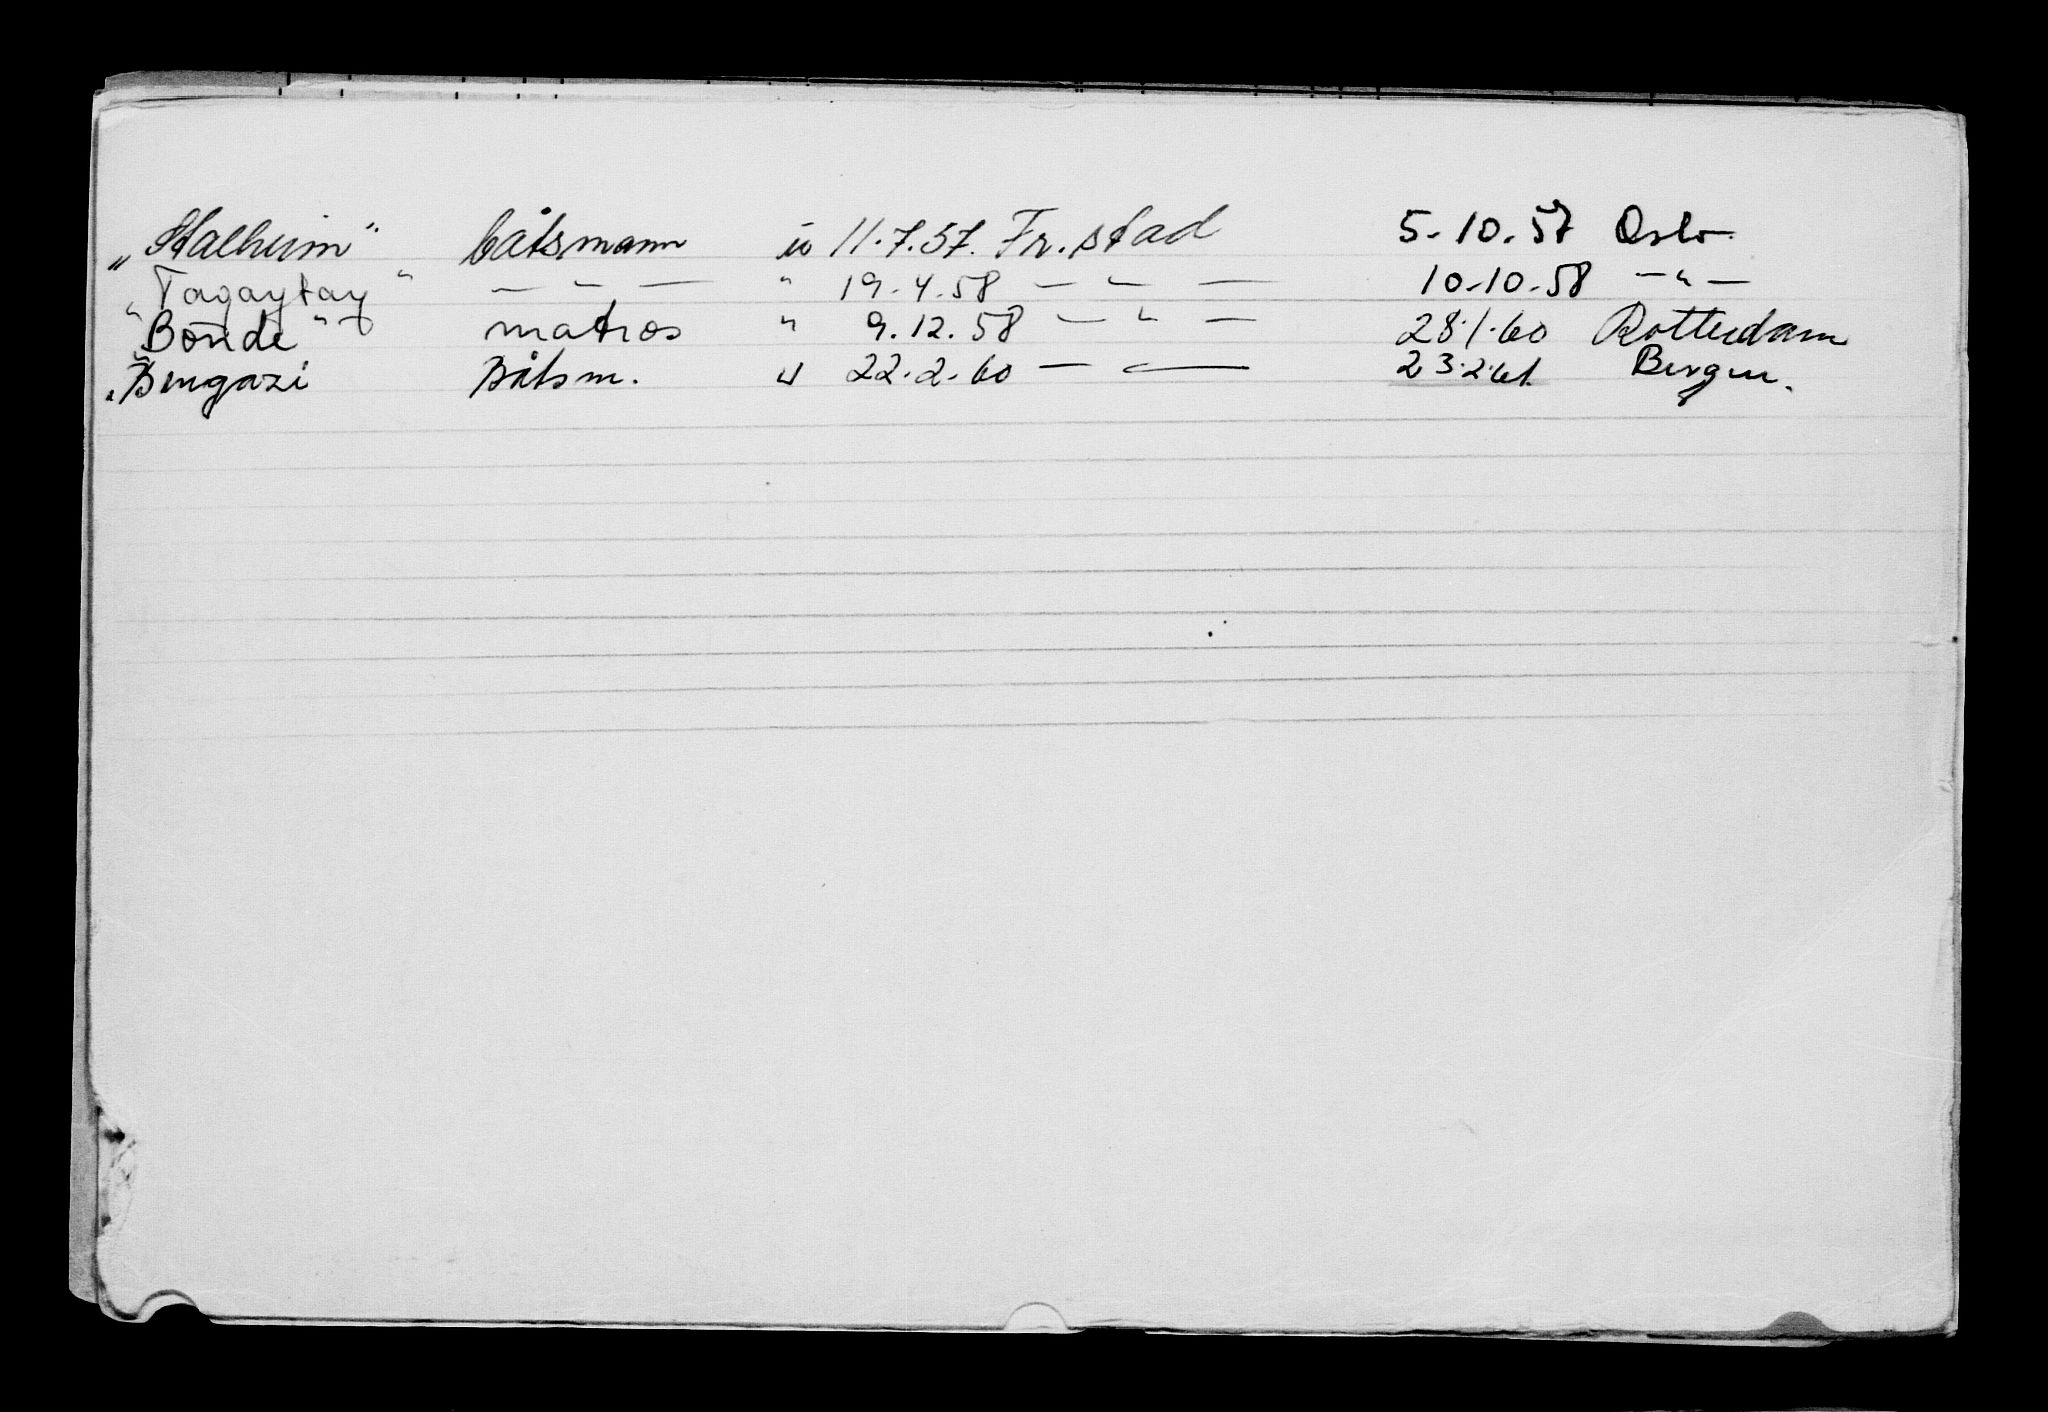 „Stalheim" båtsmann u 11.7.57. Fr.stad 5.10.57 Oslo.
"Tagaytay" — " — " 19.4.58 — " — 10.10.58 — " —
"Bonde" matros " 9.12.58 — " — 28.1.60 Rotterdam
"Bengazi" Båtsm. u 22.2.60 — — 23.2.61. Bergen.